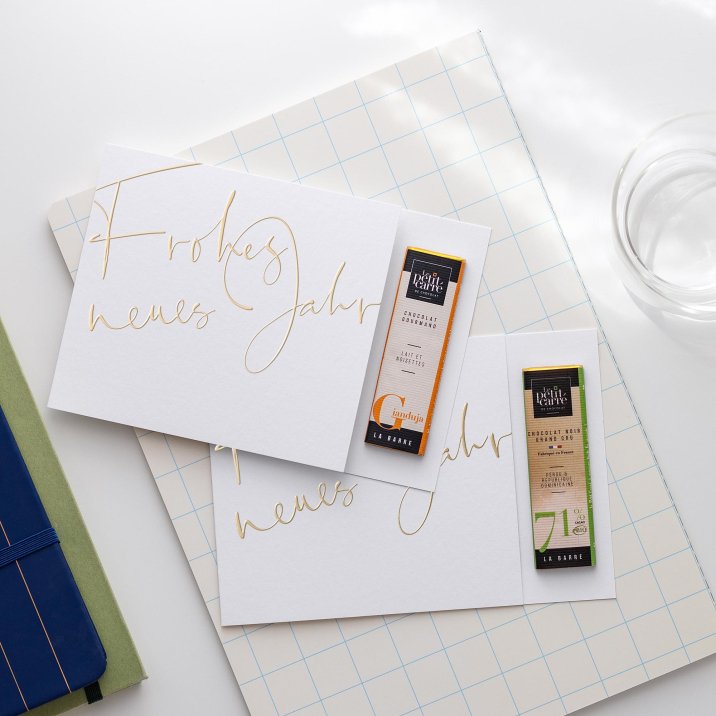 Frohes
neues Jahr
le
petit
carré
DE CHOCOLAT
CHOCOLAT
GOURMAND
LAIT ET
NOISETTES
Gianduja
LA BARRE
neues Jahr
le
petit
carré
DE CHOCOLAT
CHOCOLAT NOIR
GRAND CRU
Fabriqué en France
PÉROU &
RÉPUBLIQUE
DOMINICAINE
71%
CACAO
LA BARRE